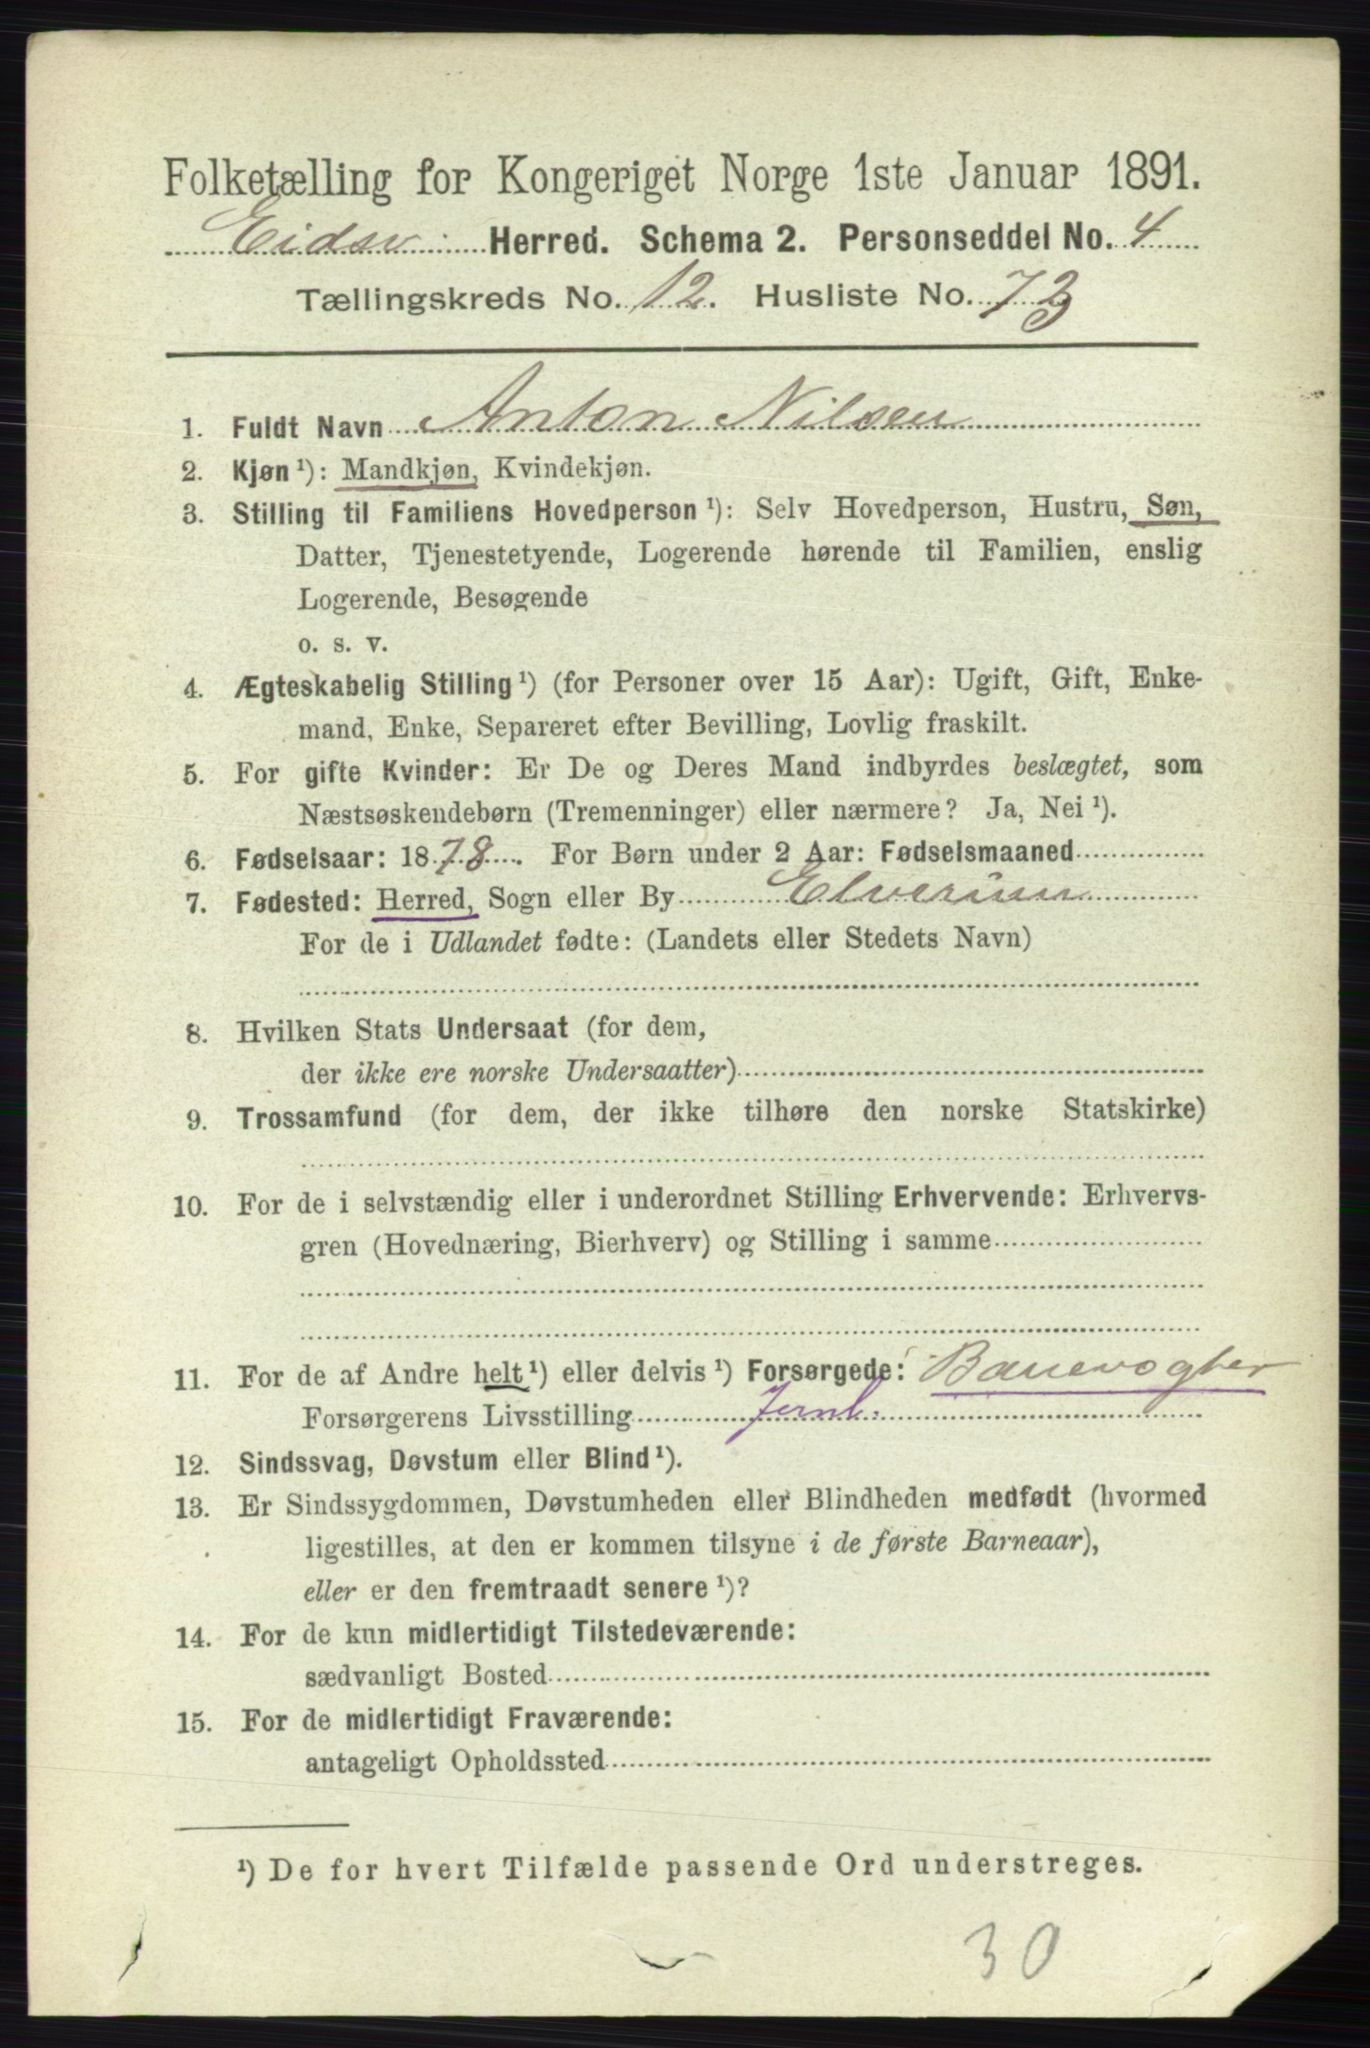 Folketælling for Kongeriget Norge 1ste Januar 1891.
Eidsv. Herred. Schema 2. Personseddel No. 4
Tællingskreds No. 12. Husliste No. 73
1. Fuldt Navn Anton Nilsen
2. Kjøn ¹): Mandkjøn, Kvindekjøn.
3. Stilling til Familiens Hovedperson ¹): Selv Hovedperson, Hustru, Søn,
Datter, Tjenestetyende, Logerende hørende til Familien, enslig
Logerende, Besøgende
o. s. v.
4. Ægteskabelig Stilling ¹) (for Personer over 15 Aar): Ugift, Gift, Enke-
mand, Enke, Separeret efter Bevilling, Lovlig fraskilt.
5. For gifte Kvinder: Er De og Deres Mand indbyrdes beslægtet, som
Næstsøskendebørn (Tremenninger) eller nærmere? Ja, Nei ¹).
6. Fødselsaar: 1878. For Børn under 2 Aar: Fødselsmaaned
7. Fødested: Herred, Sogn eller By Elverum
For de i Udlandet fødte: (Landets eller Stedets Navn)
8. Hvilken Stats Undersaat (for dem,
der ikke ere norske Undersaatter)
9. Trossamfund (for dem, der ikke tilhøre den norske Statskirke)
10. For de i selvstændig eller i underordnet Stilling Erhvervende: Erhvervs-
gren (Hovednæring, Bierhverv) og Stilling i samme
11. For de af Andre helt ¹) eller delvis ¹) Forsørgede: Banevogter
Forsørgerens Livsstilling Jernb.
12. Sindssvag, Døvstum eller Blind ¹).
13. Er Sindssygdommen, Døvstumheden eller Blindheden medfødt (hvormed
ligestilles, at den er kommen tilsyne i de første Barneaar),
eller er den fremtraadt senere ¹)?
14. For de kun midlertidigt Tilstedeværende:
sædvanligt Bosted
15. For de midlertidigt Fraværende:
antageligt Opholdssted
¹) De for hvert Tilfælde passende Ord understreges.
30